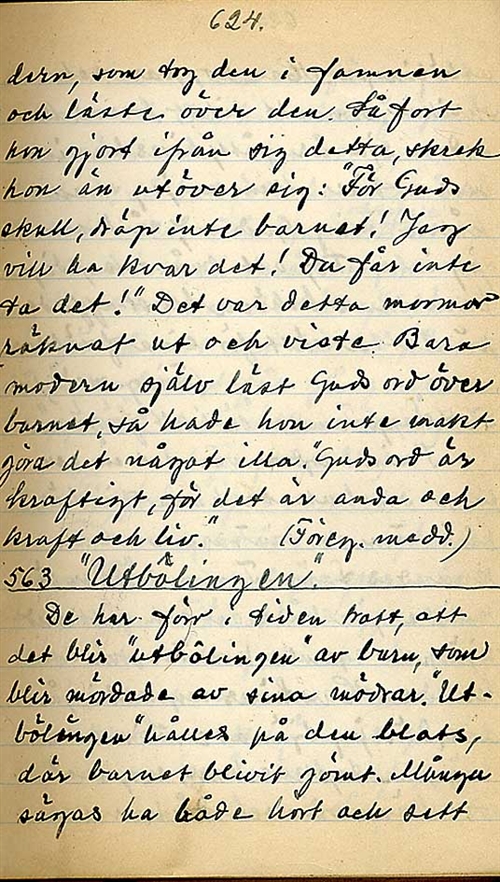 624.
dern, som tog den i famnen
och läste över den. Så fort
hon gjort ifrån sig detta, skrek
hon än utöver sig: "För Guds
skull, dräp inte barnet! Jag
vill ha kvar det! Du får inte
ta det!" Det var detta mormor
räknat ut och visste. Bara
modern själv läst Guds ord över
barnet, så hade hon inte makt
göra det något illa. "Guds ord är
kraftigt, för det är anda och
kraft och liv." (Föreg. medd.)
563 "Utbôlingen."
De har förr i tiden trott, att
det blir "utbôlingen" av barn, som
blir mördade av sina mödrar. "Ut-
bôlingen" hålles på den plats,
där barnet blivit gömt. Många
sägas ha både hört och sett